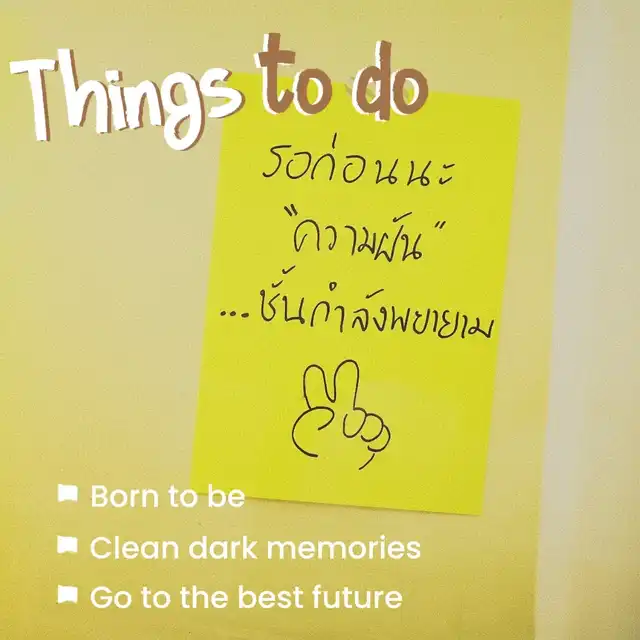 Things to do
รอก่อนนะ
"ความฝัน"
...ชั้นกำลังพยายาม
Born to be
Clean dark memories
Go to the best future